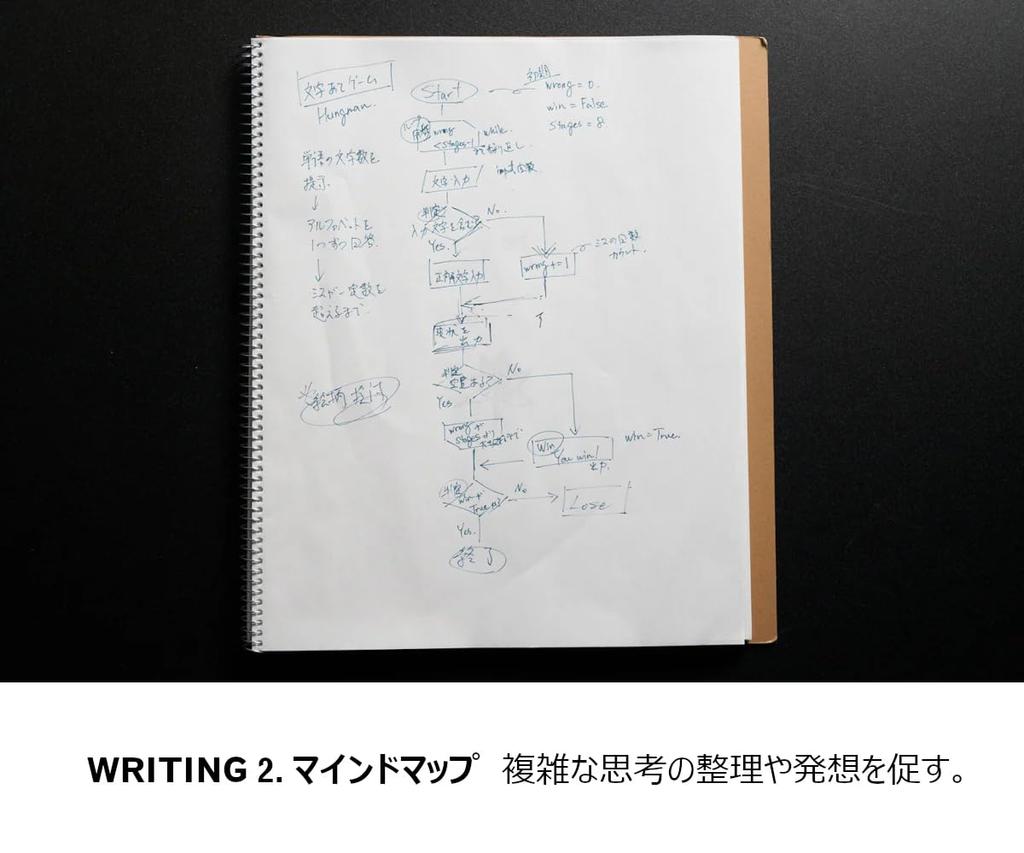 文字あてゲーム
Hungman.
単語の文字数を
提示.
↓
アルファベットを
1つずつ回答.
↓
ミスが一定数を
超えるまで.
絵柄 提示
Start
初期
wrong = 0.
win = False
stages = 8.
ループ
wrong
< stages-1
while.
で繰り返し.
文字入力
判定
入力文字を含む
No.
Yes.
正解文字入力
wrong += 1
ミスの回数
カウント.
現状を
出力
判定
空変ある?
No
Yes
wrong が
stages より
まで
Win
You win!
出力.
win = True.
判定
win が
True
No
Lose
Yes.
終了
WRITING 2. マインドマップ 複雑な思考の整理や発想を促す。